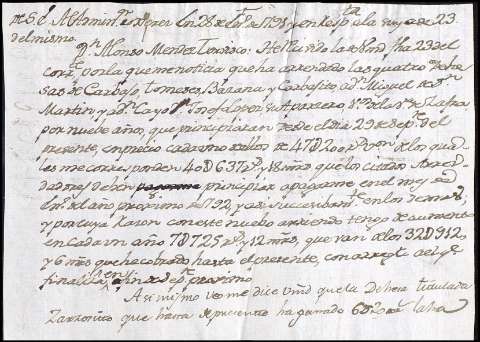 Al Admin.r de Xerez En 28 de en.ro de 1791 y en resp.ta a la suya de 23
del mismo.
D.n Alonso Mendez Tenrreiro: He llegado la de Vmd fha 23 del
corr.te con la que me noticia que ha arrendado las quatro
de Carbajo, Tomeros, Bazana y Carbajito, a d.n Miguel de S.n
Martin, y a d.n Cayo Josef
por nuebe años, que principiaran desde el dia 29 de sep.re del
presente, en precio cada uno de ellos de 47D200 r.s v.on de los qua-
les me corresponden 40D637 r.s y 18 mrs que los citados Arren-
dadores deben principiar a pagarme en el mes de
En.ro del año proximo de 792, y asi succesibam.te en los demas;
y por cuya razon con este nuebo arriendo tengo de aumento
en cada un año 7D725 r.s y 12 mrs, que van de los 32D912
y 6 mrs que he cobrado hasta el presente, con arreg.lo al q.e
finaliza en fin de sep.re proximo
Asi mismo veo me dice Vmd que la dehesa titulada
que hasta de presente ha ganado 6D200 r.s la ha